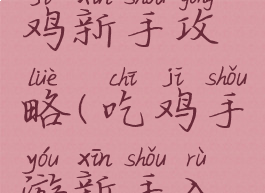 jī xīn shǒu gōng
鸡新手攻
lüè chī jī shǒu
略(吃鸡手
yóu xīn shǒu rù
游新手入